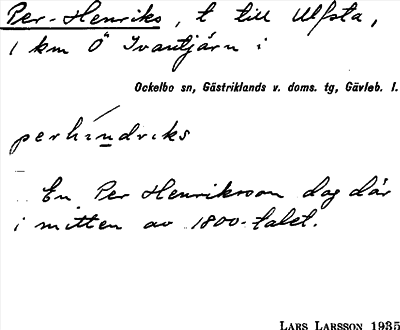 Per-Henriks, t till Ulfsta,
1 km Ö Svantjärn i
Ockelbo sn, Gästriklands v. doms. tg, Gävleb. l.
perhíndriks
En Per Henriksson dog där
i mitten av 1800-talet.
LARS LARSSON 1935